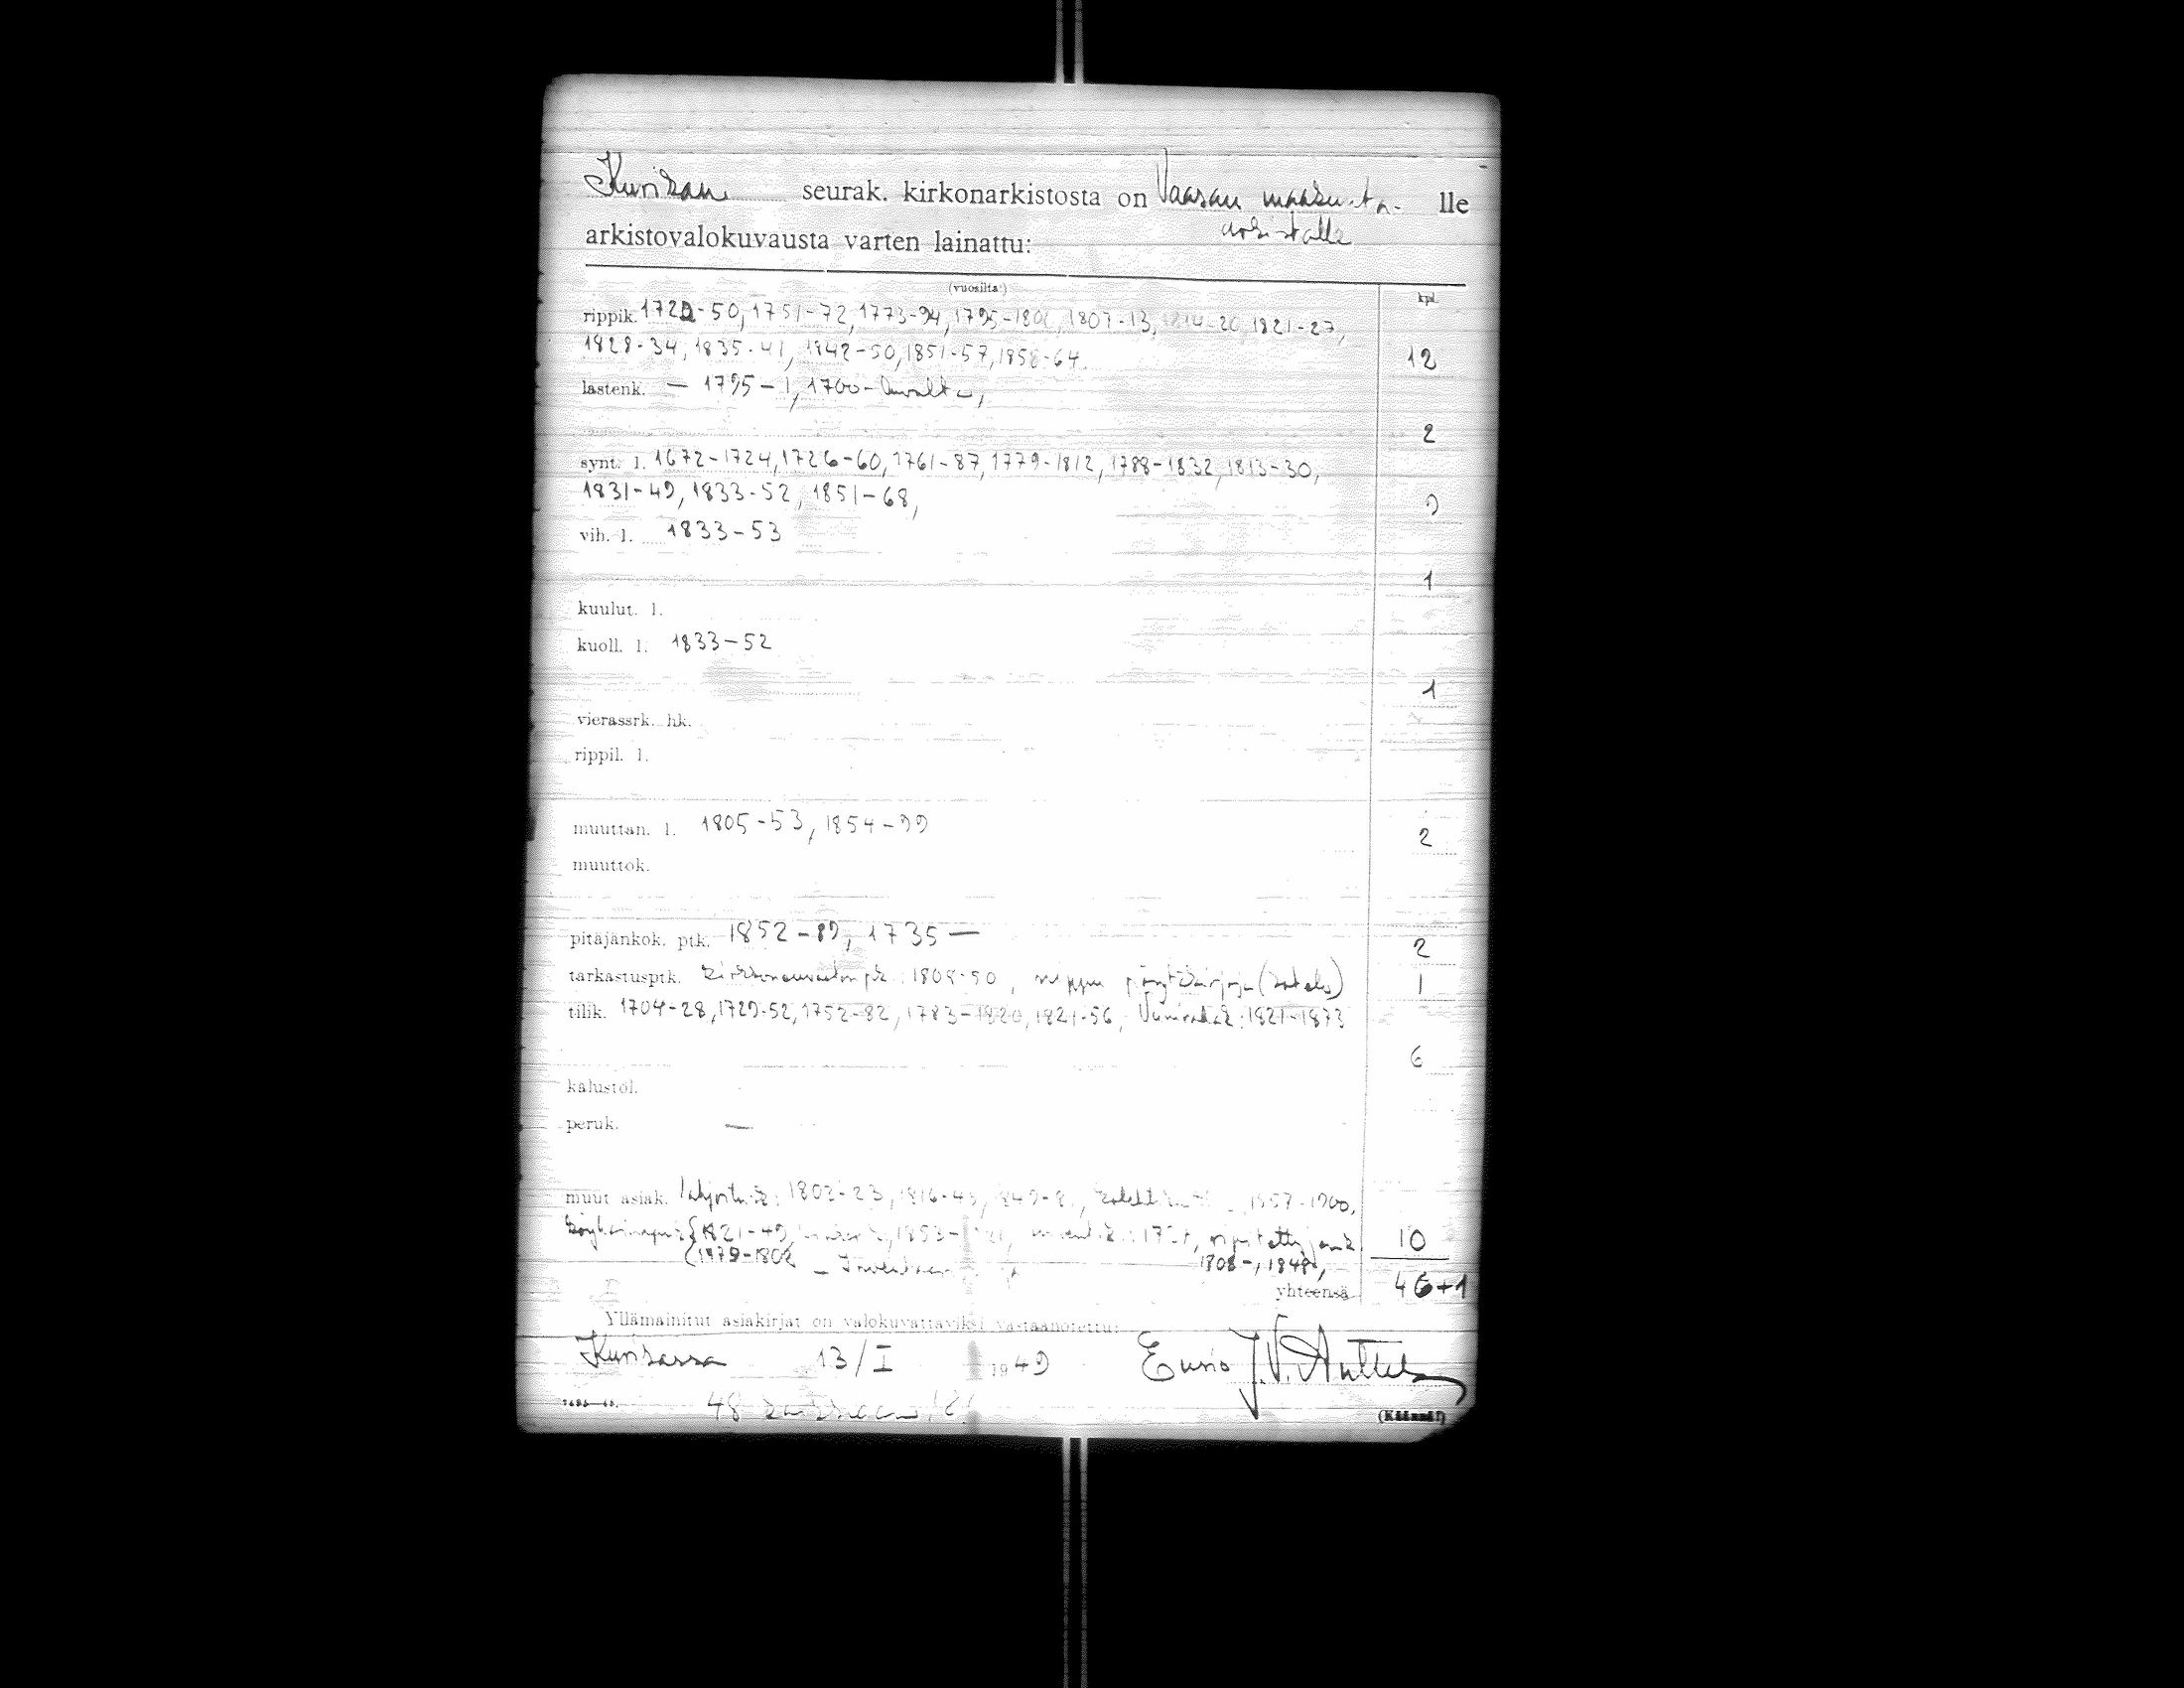 Kurikan seurak. kirkonarkistosta on Vaasan maakunta- lle
arkistolle
arkistovalokuvausta varten lainattu:
(vuosilta:) kpl.
rippik. 1729-50, 1751-72, 1773-94, 1795-1806, 1807-13, 1814-20, 1821-27,
1828-34, 1835-41, 1842-50, 1851-57, 1858-64. 12
lastenk. — 1795-1, 1700-luvulta,
2
synt. l. 1672-1724, 1726-60, 1761-87, 1779-1812, 1788-1832, 1813-30,
1831-49, 1833-52, 1851-68, 9
vih. l. 1833-53
1
kuulut. l.
kuoll. l. 1833-52
1
vierassrk. hk.
rippil. l.
muuttan. l. 1805-53, 1854-99 2
muuttok.
pitäjänkok. ptk. 1852-89, 1735— 2
tarkastusptk. kirkkoneuvoston ptk. 1808-50, nippu pöytäkirjoja 1
tilik. 1704-28, 1729-52, 1752-82, 1783-1820, 1821-56, 1821-1873
6
kalustol.
peruk. —
muut asiak. 1802-23, 1816-43, 1857-1900,
1821-49, 1853- 10
1808-, 1848,
yhteensä 46+1
Yllämainitut asiakirjat on valokuvattaviksi vastaanotettu:
Kurikassa 13/I 1949 Eunio J.V. Anttila
48
(Käännä!)